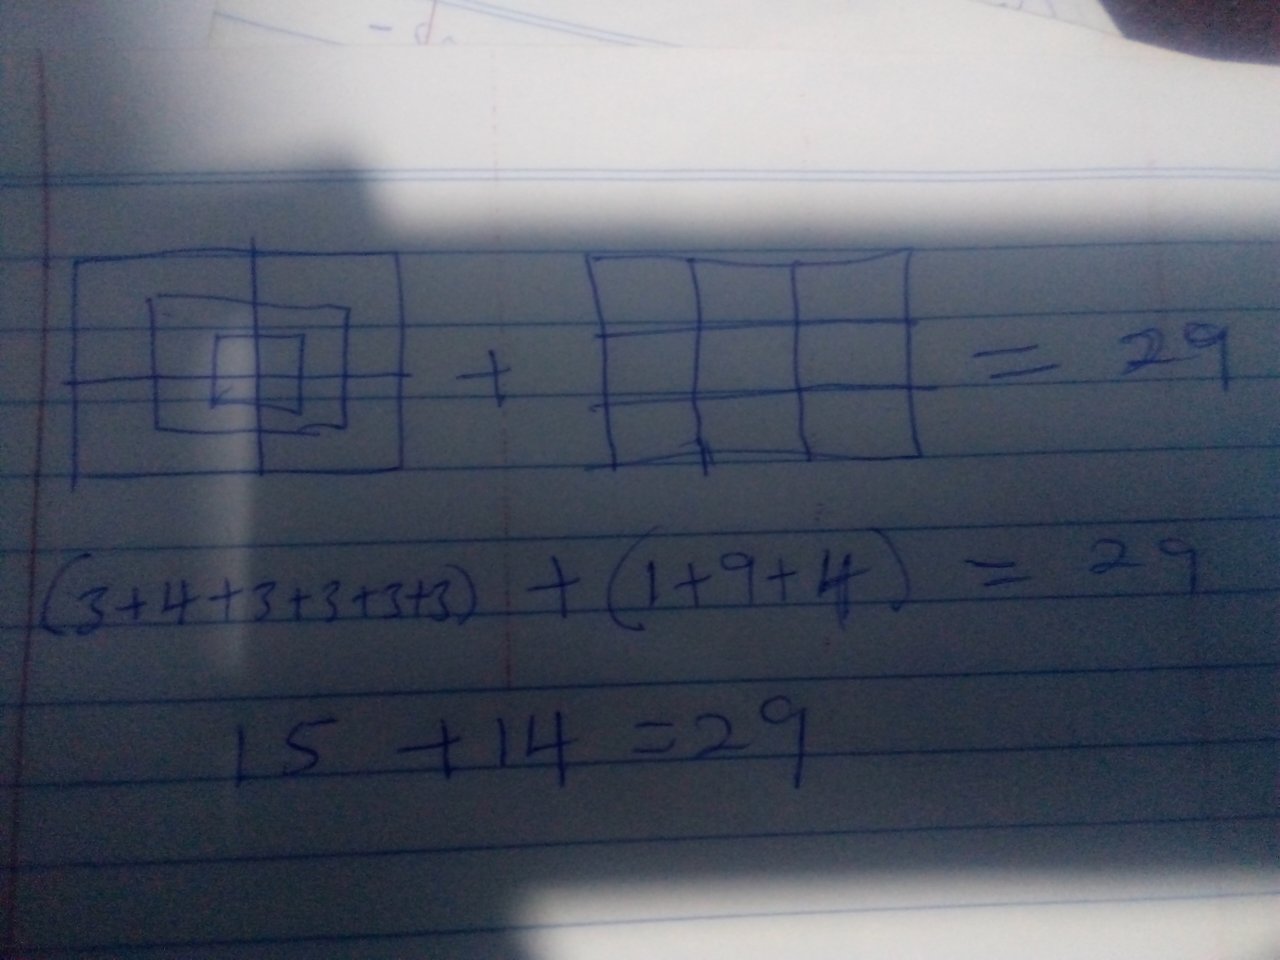 + = 29
(3+4+3+3+3+3) + (1+9+4) = 29
15 +14 =29